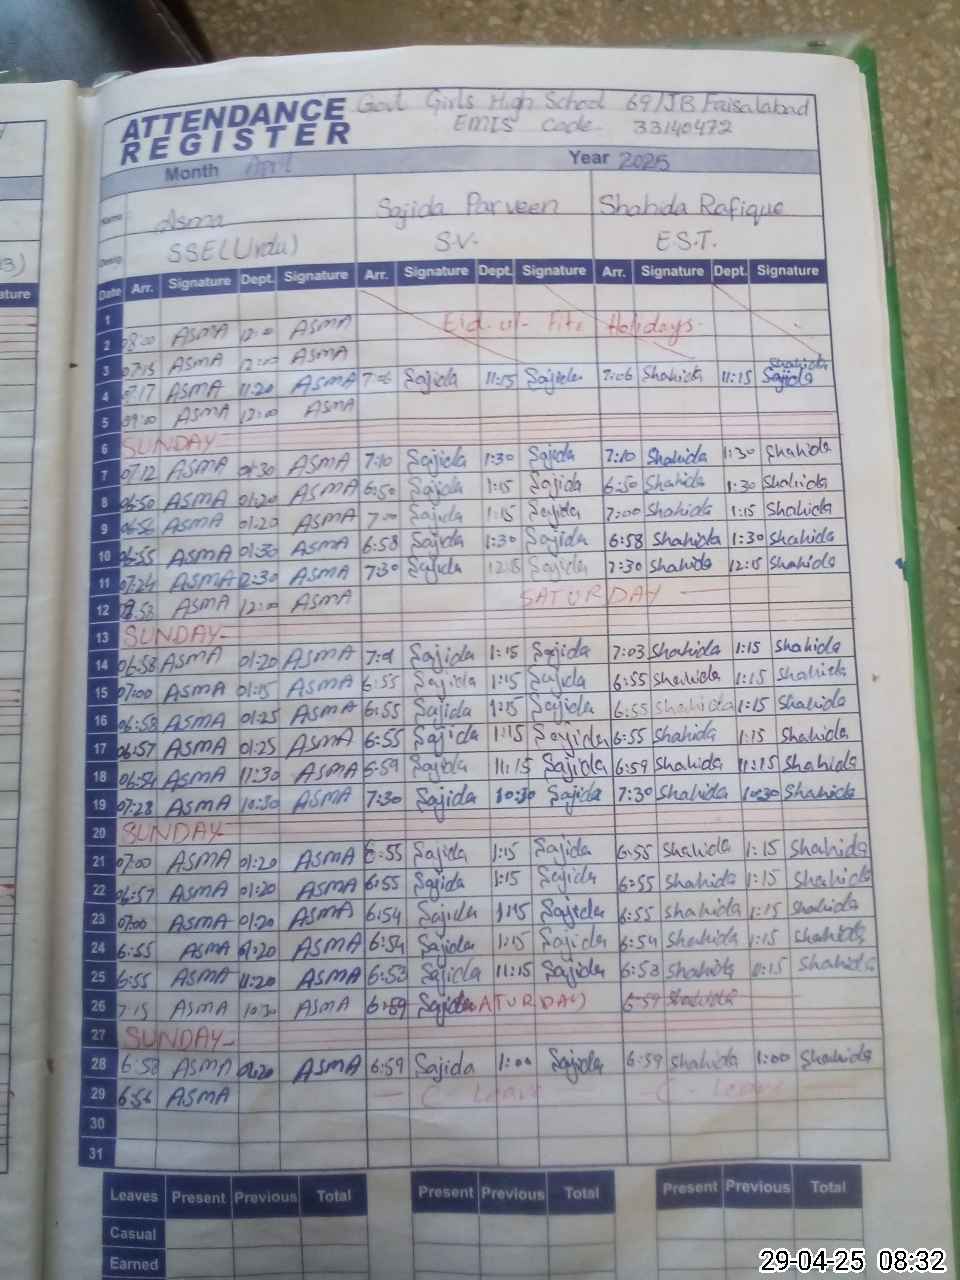 ATTENDANCE REGISTER Govt Girls High School 69/JB Faisalabad
EMIS Code 33140472
Month April Year 2025
Name Asma Sajida Parveen Shahida Rafique
Desig. SSE(Urdu) S.V. E.S.T.
Date Arr. Signature Dept. Signature Arr. Signature Dept. Signature Arr. Signature Dept. Signature
1
2 08:00 ASMA 12:00 ASMA Eid-ul-Fitr Holidays
3 07:15 ASMA 12:00 ASMA
4 07:17 ASMA 11:20 ASMA 7:06 Sajida 11:15 Sajida 7:06 Shahida 11:15 Shahida Sajida
5 09:00 ASMA 12:00 ASMA
6 SUNDAY
7 07:12 ASMA 01:30 ASMA 7:10 Sajida 1:30 Sajida 7:10 Shahida 1:30 Shahida
8 06:50 ASMA 01:20 ASMA 6:50 Sajida 1:15 Sajida 6:50 Shahida 1:30 Shahida
9 06:56 ASMA 01:20 ASMA 7:00 Sajida 1:15 Sajida 7:00 Shahida 1:15 Shahida
10 06:55 ASMA 01:30 ASMA 6:58 Sajida 1:30 Sajida 6:58 Shahida 1:30 Shahida
11 07:24 ASMA 12:30 ASMA 7:30 Sajida 12:15 Sajida 7:30 Shahida 12:15 Shahida
12 ASMA 12:00 ASMA SATURDAY
13 SUNDAY
14 06:58 ASMA 01:20 ASMA 7:01 Sajida 1:15 Sajida 7:03 Shahida 1:15 Shahida
15 07:00 ASMA 01:15 ASMA 6:55 Sajida 1:15 Sajida 6:55 Shahida 1:15 Shahida
16 06:58 ASMA 01:25 ASMA 6:55 Sajida 1:15 Sajida 6:55 Shahida 1:15 Shahida
17 06:57 ASMA 01:25 ASMA 6:55 Sajida 1:15 Sajida 6:55 Shahida 1:15 Shahida
18 06:54 ASMA 11:30 ASMA 6:59 Sajida 11:15 Sajida 6:59 Shahida 11:15 Shahida
19 07:28 ASMA 10:30 ASMA 7:30 Sajida 10:30 Sajida 7:30 Shahida 10:30 Shahida
20 SUNDAY
21 07:00 ASMA 01:20 ASMA 6:55 Sajida 1:15 Sajida 6:55 Shahida 1:15 Shahida
22 06:57 ASMA 01:20 ASMA 6:55 Sajida 1:15 Sajida 6:55 Shahida 1:15 Shahida
23 07:00 ASMA 01:20 ASMA 6:54 Sajida 1:15 Sajida 6:55 Shahida 1:15 Shahida
24 6:55 ASMA 01:20 ASMA 6:54 Sajida 1:15 Sajida 6:54 Shahida 1:15 Shahida
25 6:55 ASMA 11:20 ASMA 6:53 Sajida 11:15 Sajida 6:53 Shahida 11:15 Shahida
26 7:15 ASMA 10:30 ASMA 6:59 Sajida SATURDAY 6:59 Shahida
27 SUNDAY
28 6:58 ASMA 01:20 ASMA 6:59 Sajida 1:00 Sajida 6:59 Shahida 1:00 Shahida
29 6:56 ASMA C-Leave C-Leave
30
31
Leaves Present Previous Total Present Previous Total Present Previous Total
Casual
Earned
29-04-25 08:32